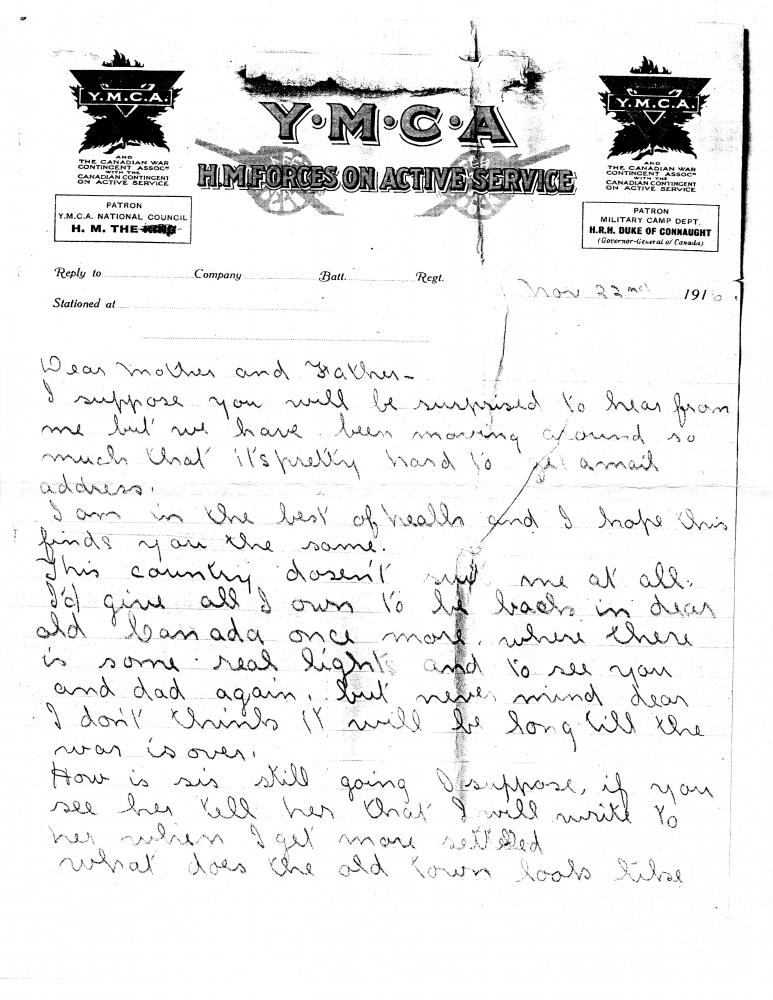 Y.M.C.A.
AND
THE CANADIAN WAR
CONTINGENT ASSOCN
WITH THE
CANADIAN CONTINGENT
ON ACTIVE SERVICE
PATRON
Y.M.C.A. NATIONAL COUNCIL
H. M. THE
Y·M·C·A
H.M. FORCES ON ACTIVE SERVICE
Y.M.C.A.
AND
THE CANADIAN WAR
CONTINGENT ASSOCN
WITH THE
CANADIAN CONTINGENT
ON ACTIVE SERVICE
PATRON
MILITARY CAMP DEPT.
H.R.H. DUKE OF CONNAUGHT
(Governor-General of Canada)
Reply to Company Batt. Regt.
Nov 22nd 1916.
Stationed at
Dear Mother and Father-
I suppose you will be surprised to hear from
me but we have been moving around so
much that it's pretty hard to get a mail
address.
I am in the best of healls and I hope this
finds you the same.
This country dosen't suit me at all.
I'd give all I own to be back in dear
old Canada once more, where there
is some real lights and to see you
and dad again, but never mind dear
I don't think it will be long till the
war is over.
How is sis still going I suppose, if you
see her tell her that I will write to
her when I get more settled
what does the old town look like